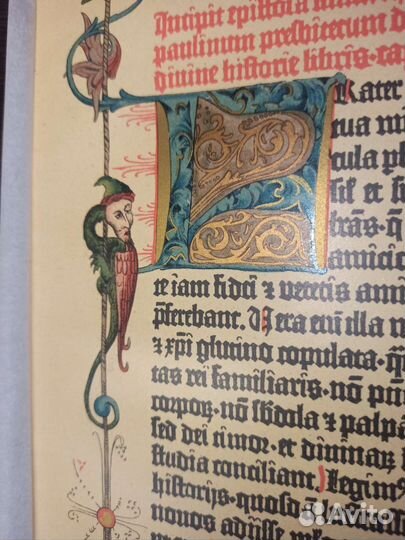 Incipit epistola
paulinum presbiterum
divine historie libris. ca
Frater
tua mi
cula p
sil' et s
trās. q̄
amicic
te iam fidei et veteris ami
p̄ferebant. Vera enī illa
et xp̄i glutino copulata. q̄
tas rei familiaris. nō p̄n
corporꝝ. nō s̄bdola et palpā
sed dei timor. et divinaꝝ
studia conciliant. Legim⁹
historijs. quosdā
novos adijsse
mar
Avito